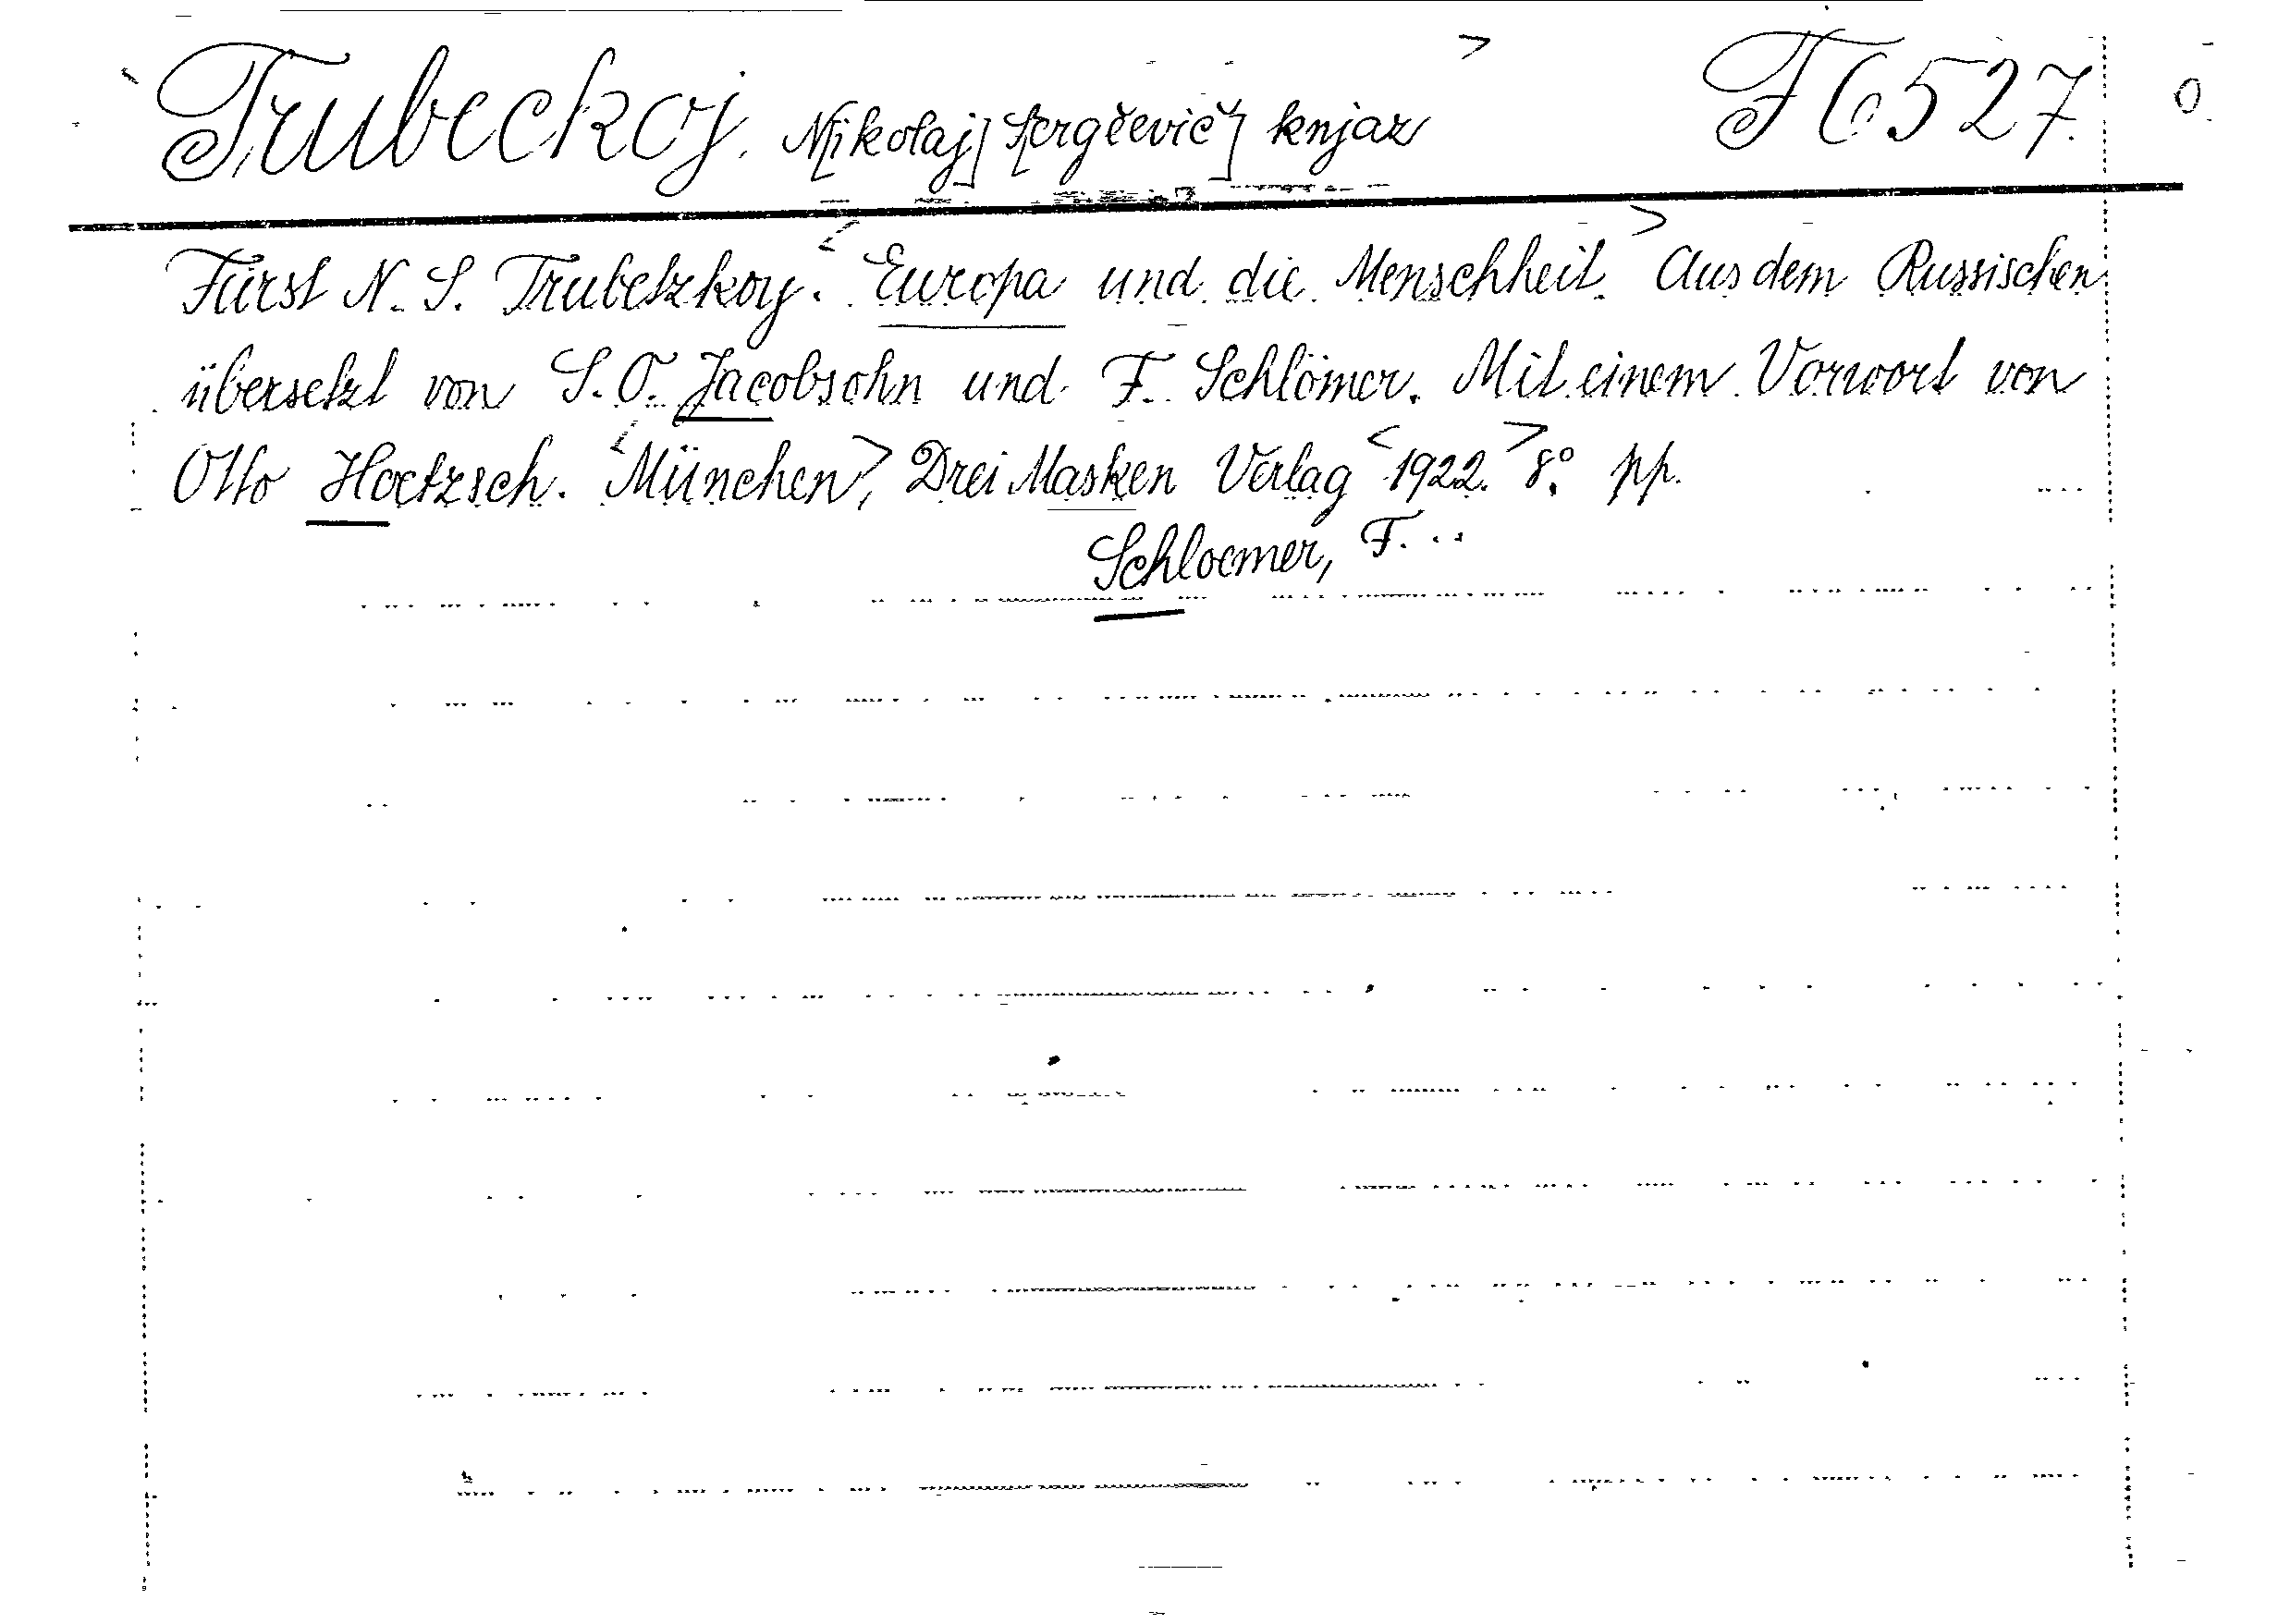 Trubeckoj, N[ikolaj] S[ergěevič] knjaz F6527.
Fürst N. S. Trubetzkoy. Europa und die Menschheit. Aus dem Russischen
übersetzt von S. O. Jacobsohn und F. Schlömer. Mit einem Vorwort von
Otto Hoetzsch. München, Drei Masken Verlag 1922. 8º. pp.
Schloemer, F...